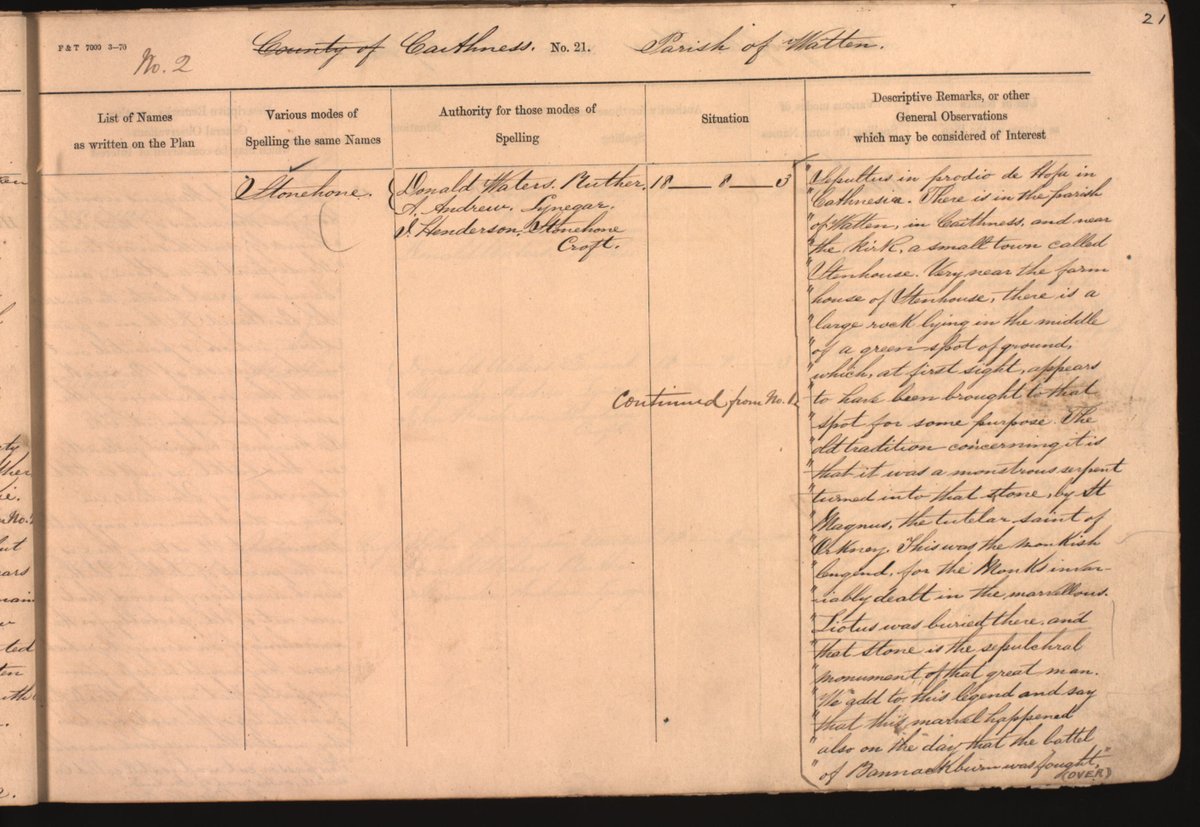 21
F & T 7000 3–70
No. 2
County of Caithness. No. 21. Parish of Watten.
List of Names
as written on the Plan
Various modes of
Spelling the same Names
Authority for those modes of
Spelling
Situation
Descriptive Remarks, or other
General Observations
which may be considered of Interest
Stonehone
Donald Waters. Ruther
A. Andrew. Lynegar.
J. Henderson. Stonehone
Croft.
18 — 8 — 3
Continued from No. 1
"Sepultus in prodio de Hofa in
"Cathnesia. There is in the parish
"of Watten, in Caithness, and near
"the Kirk, a small town called
"Stenhouse. Very near the farm
"house of Stenhouse, there is a
"large rock lying in the middle
"of a green spot of ground,
"which, at first sight, appears
"to have been brought to that
"spot for some purpose. The
"old tradition concerning it is
"that it was a monstrous serpent
"turned into that stone, by St
"Magnus, the tutelar saint of
"Orkney. This was the monkish
"legend, for the Monks invar-
"iably dealt in the marvellous.
"Liotus was buried there, and
"that stone is the sepulchral
"monument of that great man.
"We add to this legend and say
"that this marvel happened
"also on the day that the battel
"of Bannackburn was fought,"
(OVER)